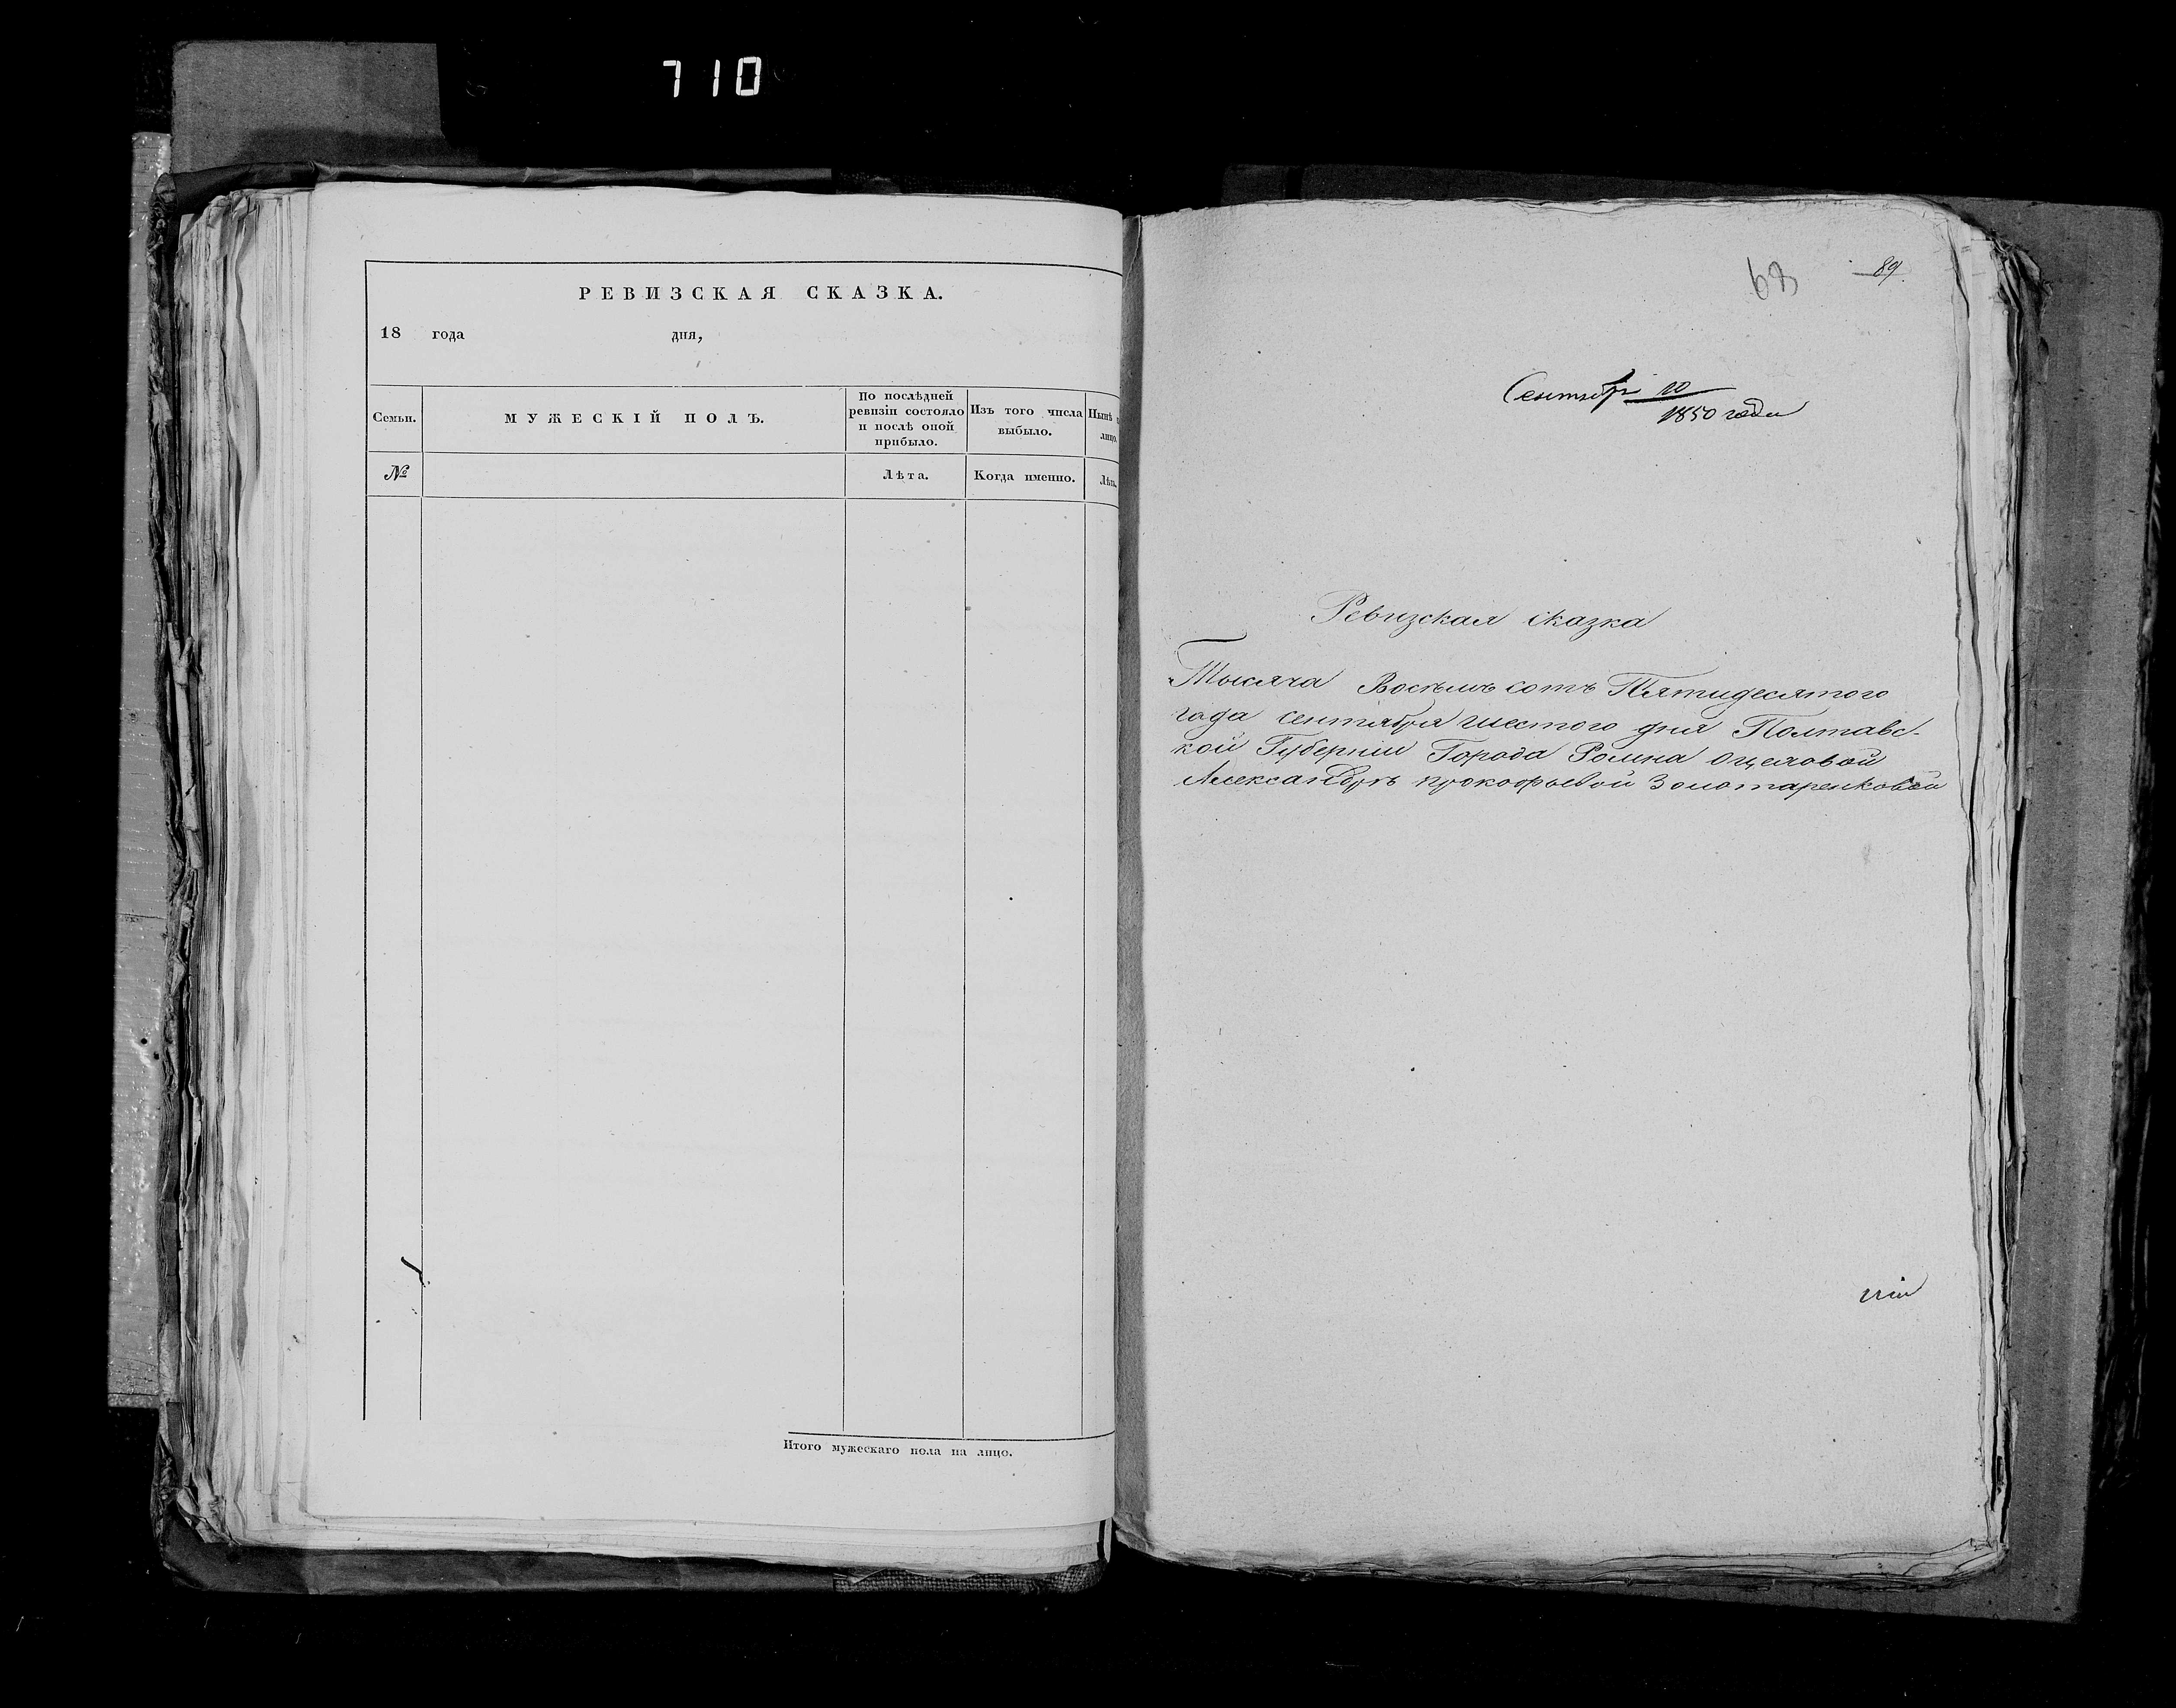 710
РЕВИЗСКАЯ СКАЗКА.
18 года дня,
Семьи.
МУЖЕСКІЙ ПОЛЪ.
По послѣдней
ревизіи состояло
и послѣ оной
прибыло.
Изъ того числа
выбыло.
Нынѣ
лицо.
№
Лѣта.
Когда именно.
Лѣта.
Итого мужескаго пола на лицо.
89
68
Сентября 10
1850 года
Ревизская сказка
Тысяча Восемь сотъ Пятидесятого
года сентября шестого дня Полтавс-
кой Губерніи Города Ромна о
Александръ прокофьевой Золотаренковой